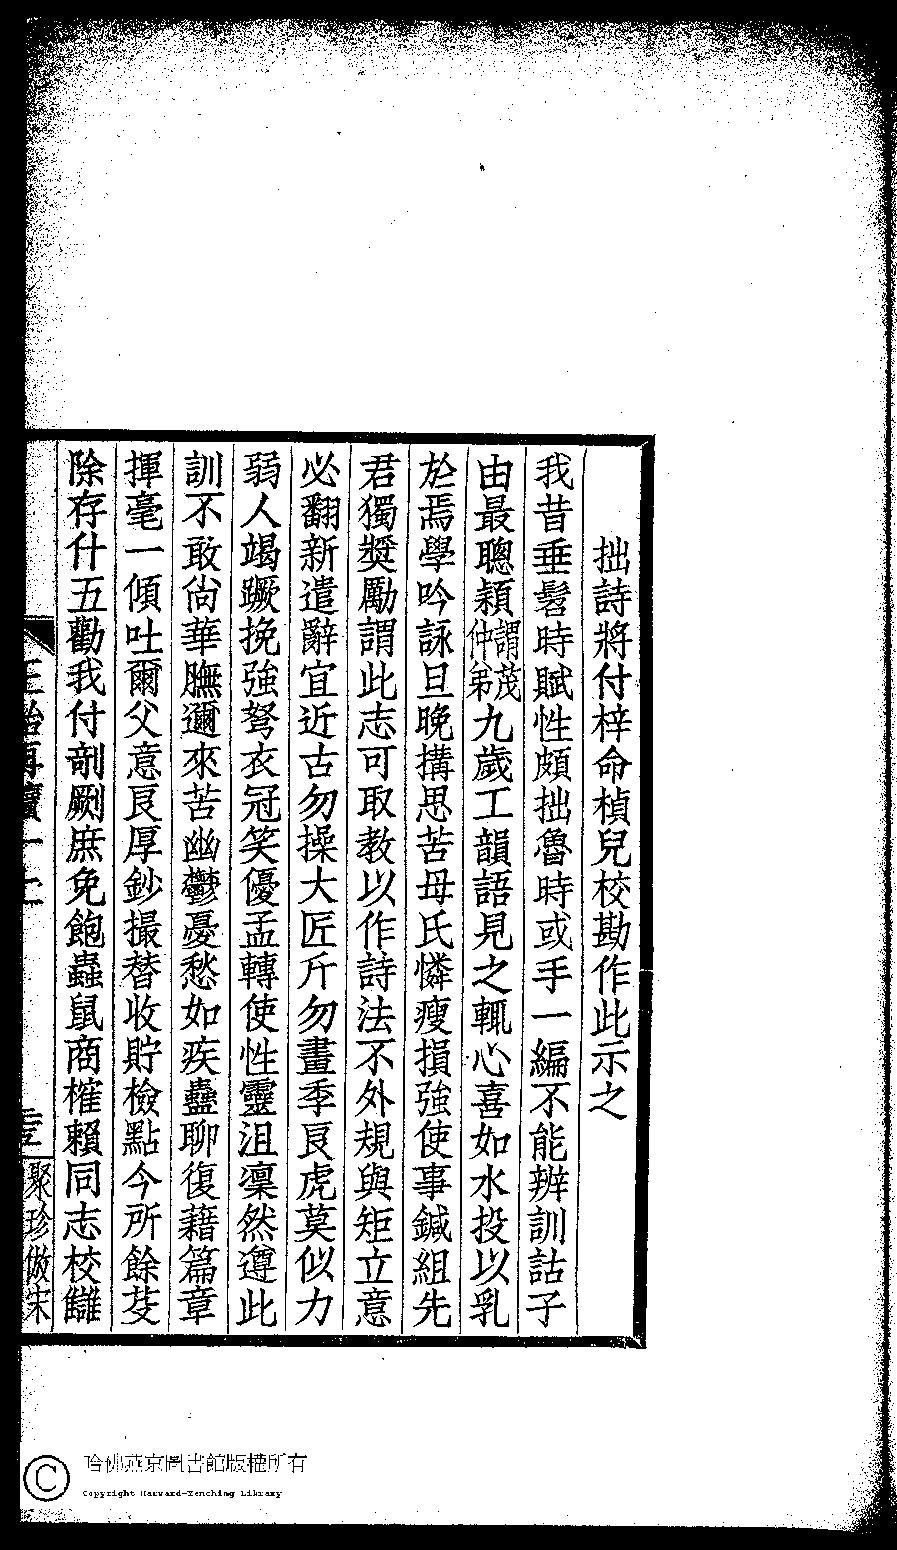 拙詩將付梓命楨兒校勘作此示之
我昔垂髫時賦性頗拙魯時或手一編不能辨訓詁子
由最聰穎謂茂仲弟九歲工韻語見之輒心喜如水投以乳
於焉學吟詠旦晚搆思苦母氏憐瘦損強使事鍼組先
君獨獎勵謂此志可取教以作詩法不外規與矩立意
必翻新遣辭宜近古勿操大匠斤勿畫季良虎莫似力
弱人竭蹶挽強弩衣冠笑優孟轉使性靈沮凜然遵此
訓不敢尙華膴邇來苦幽鬱憂愁如疾蠱聊復藉篇章
揮毫一傾吐爾父意良厚鈔撮替收貯檢點今所餘芟
除存什五勸我付剞劂庶免飽蟲鼠商榷賴同志校讎
聚珍倣宋
哈佛燕京圖書館版權所有
Copyright Harvard-Yenching Library